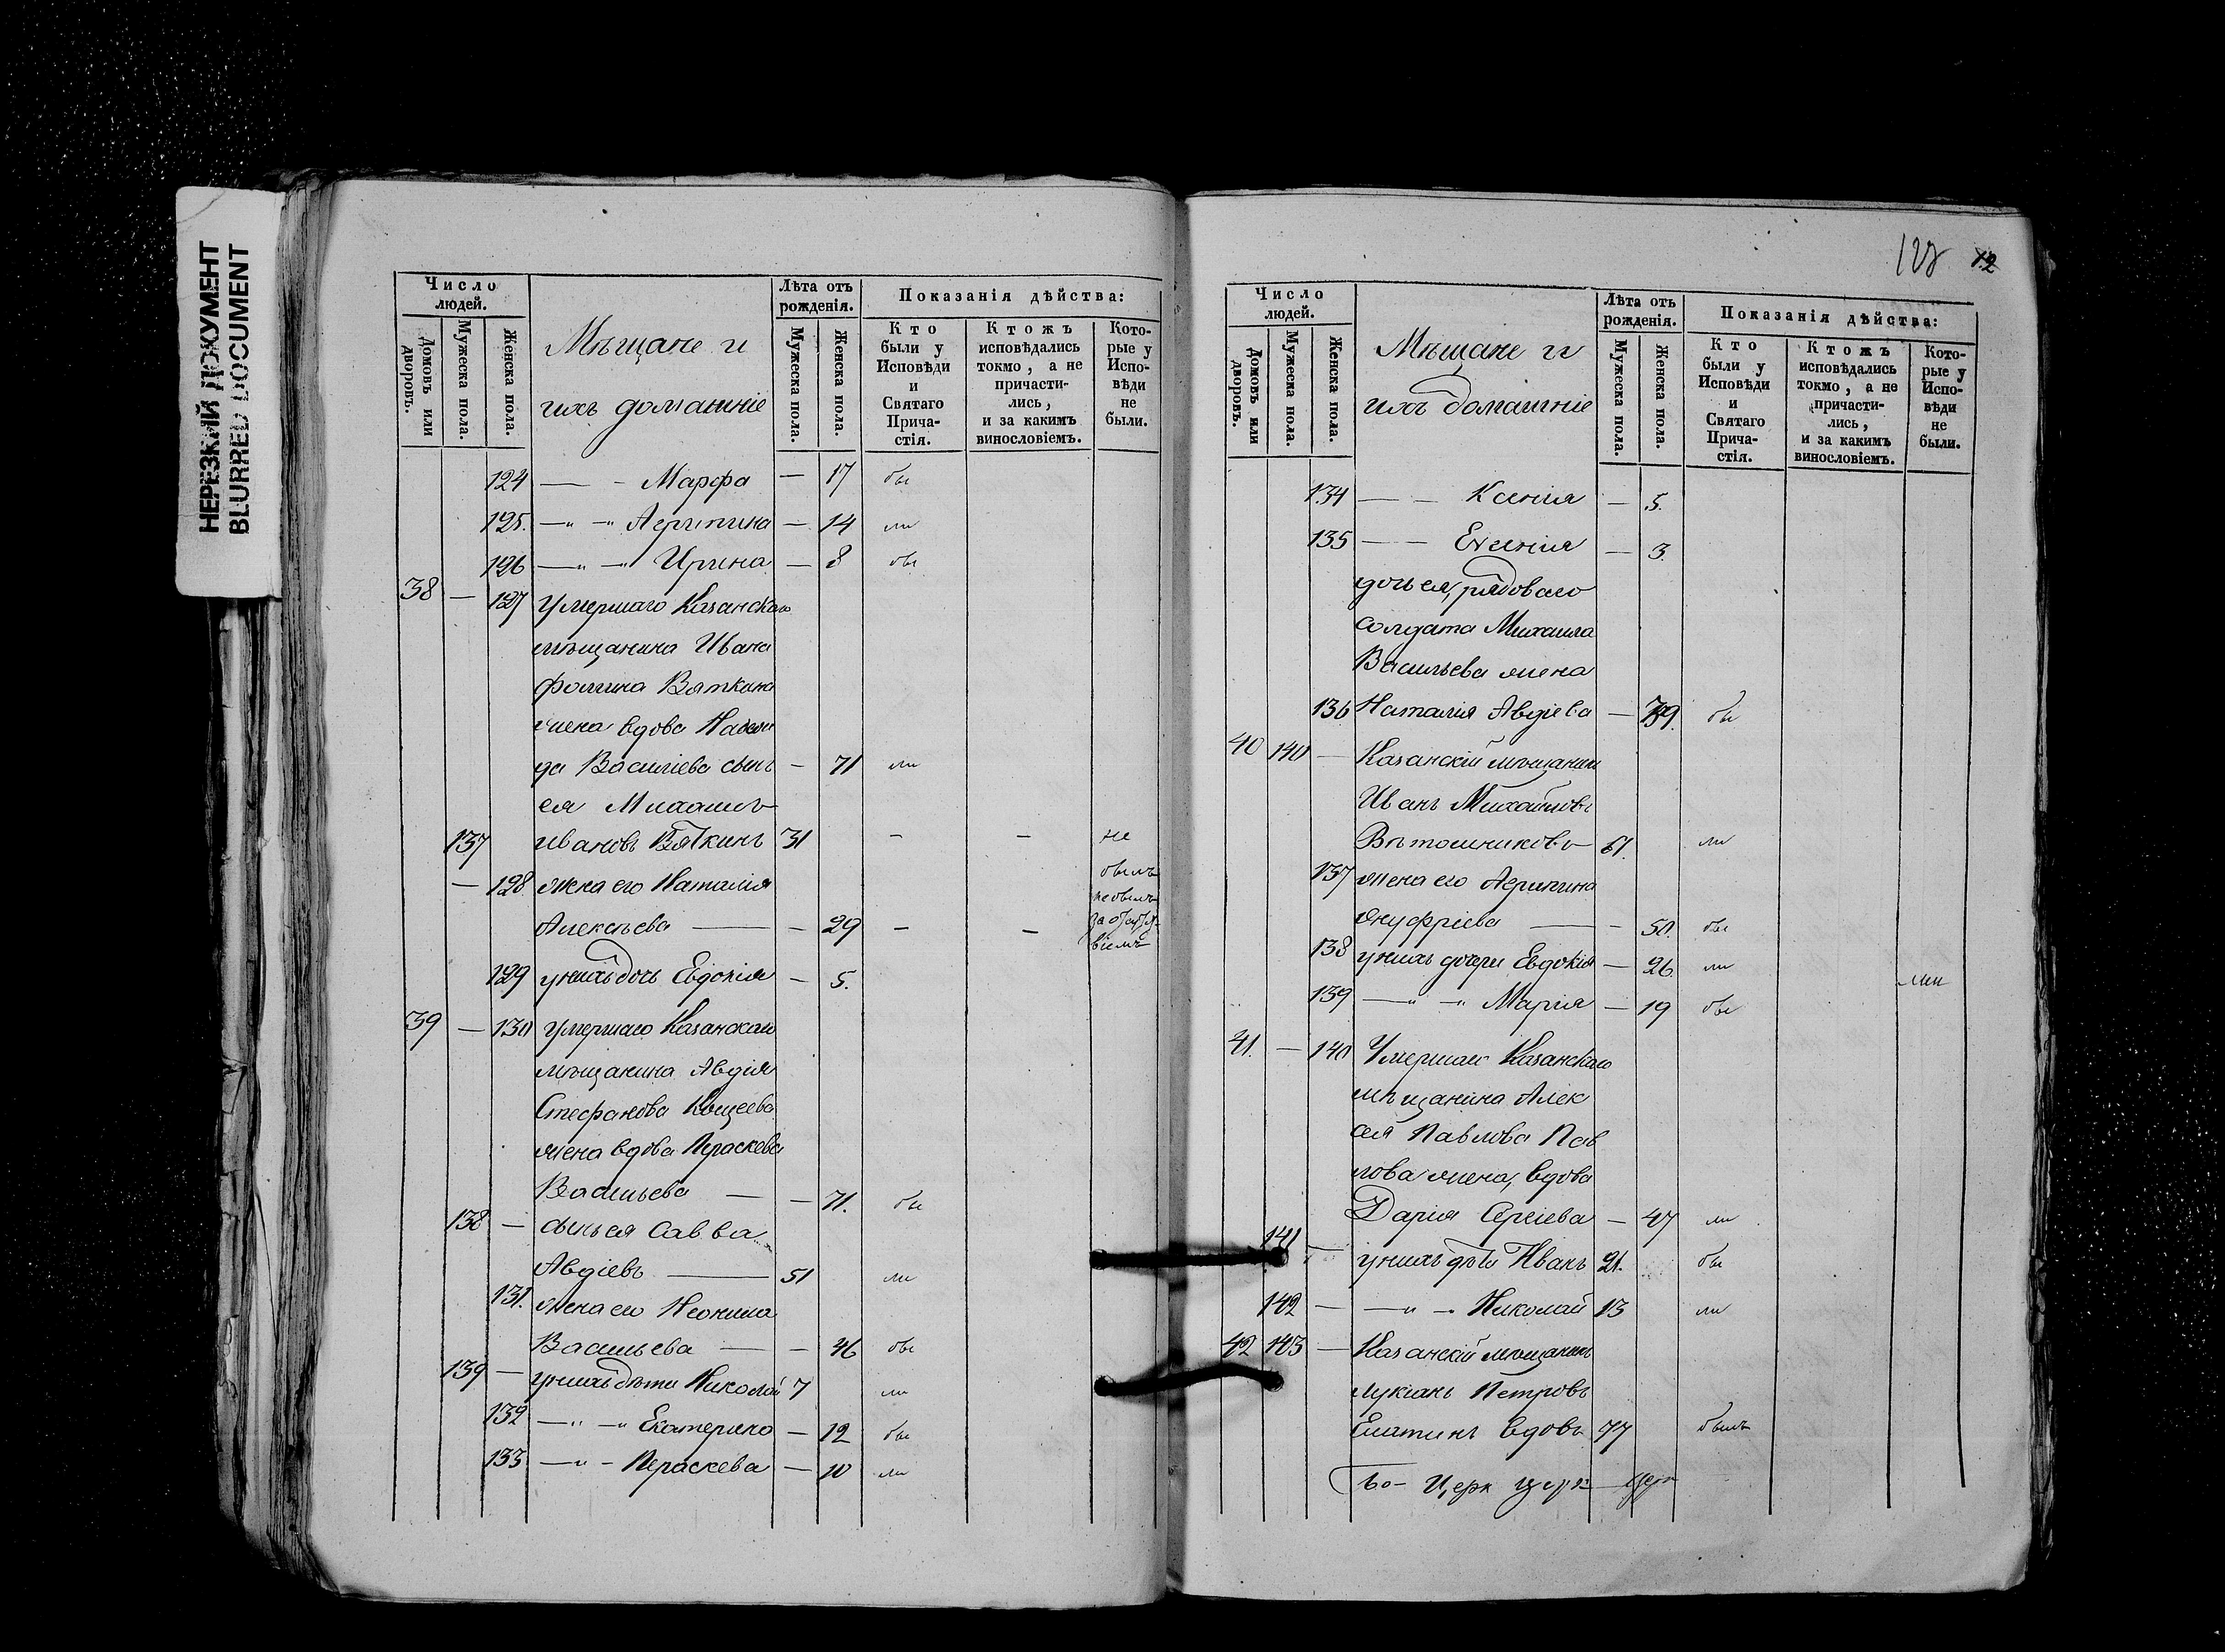 НЕРЕЗКИЙ ДОКУМЕНТ
BLURRED DOCUMENT
Число людей.
Домовъ или дворовъ.
Мужеска пола.
Женска пола.
Мѣщане и
ихъ домашніе
Лѣта отъ рожденія.
Мужеска пола.
Женска пола.
Показанія дѣйства:
Кто были у Исповѣди и Святаго Прича-стія.
Ктожъ исповѣдались токмо, а не причасти-лись, и за какимъ винословіемъ.
Кото-рые у Испо-вѣди не были.
124 — - Марфа — 17 бы
125. —„ -„ Агрипина — 14 ли
126 —„ -„ Ирина — 8 бы
38 — 127 Умершаго Казанскаго
мѣщанина Ивана
Фомина Вяткина
жена вдова Надеж
да Василіева сынъ — 71 ли
ея Михаилъ
137 Ивановъ Вяткинъ 31 — — не
былъ
— 128 жена его Наталія
не былъ
Алексѣева — — 29 — —
129 у нихъ дочь Евдокія — 5.
39 — 130 умершаго Казанскаго
мѣщанина Авдія
Стефанова Кощеева
жена вдова Параскева
Васильева — — 71. бы
138 — сынъ ея Савва
Авдіевъ — 51 ли
131. жена его Неонила
Васильева — — 46 бы
139 — у нихъ дѣти Николай 7 ли
132 —„ -„ Екатерина — 12 бы
133 —„ - Параскева — 10 ли
12
Число людей.
Домовъ или дворовъ.
Мужеска пола.
Женска пола.
Мѣщане и
ихъ домашніе
Лѣта отъ рожденія.
Мужеска пола.
Женска пола.
Показанія дѣйства:
Кто были у Исповѣди и Святаго Прича-стія.
Ктожъ исповѣдались токмо, а не причасти-лись, и за какимъ винословіемъ.
Кото-рые у Испо-вѣди не были.
134 — — Ксенія — 5.
135 — — — 3.
дочь ея, рядоваго
солдата Михаила
Васильева жена
136 Наталія Авдіева — 39. бы
40 140 — Казанскій мѣщанинъ
Иванъ Михайловъ
Вѣтошниковъ 61. ли
137 жена его Агрипина
Онуфріева — — 50. бы
138 у нихъ дочери Евдокія — 26 ли
ли
139 —„ -„ Марія — 19 бы
41. — 140 Умершаго Казанскаго
мѣщанина Алек
сея Павлова Пав
лова жена, вдова
Дарія Сергіева — 47 ли
141 — у нихъ дѣти Иванъ 21. бы
142 — —„ -„ Николай 13 ли
42 143 — Казанскій мѣщанинъ
Лукіанъ Петровъ
Елатинъ вдовъ 77 былъ